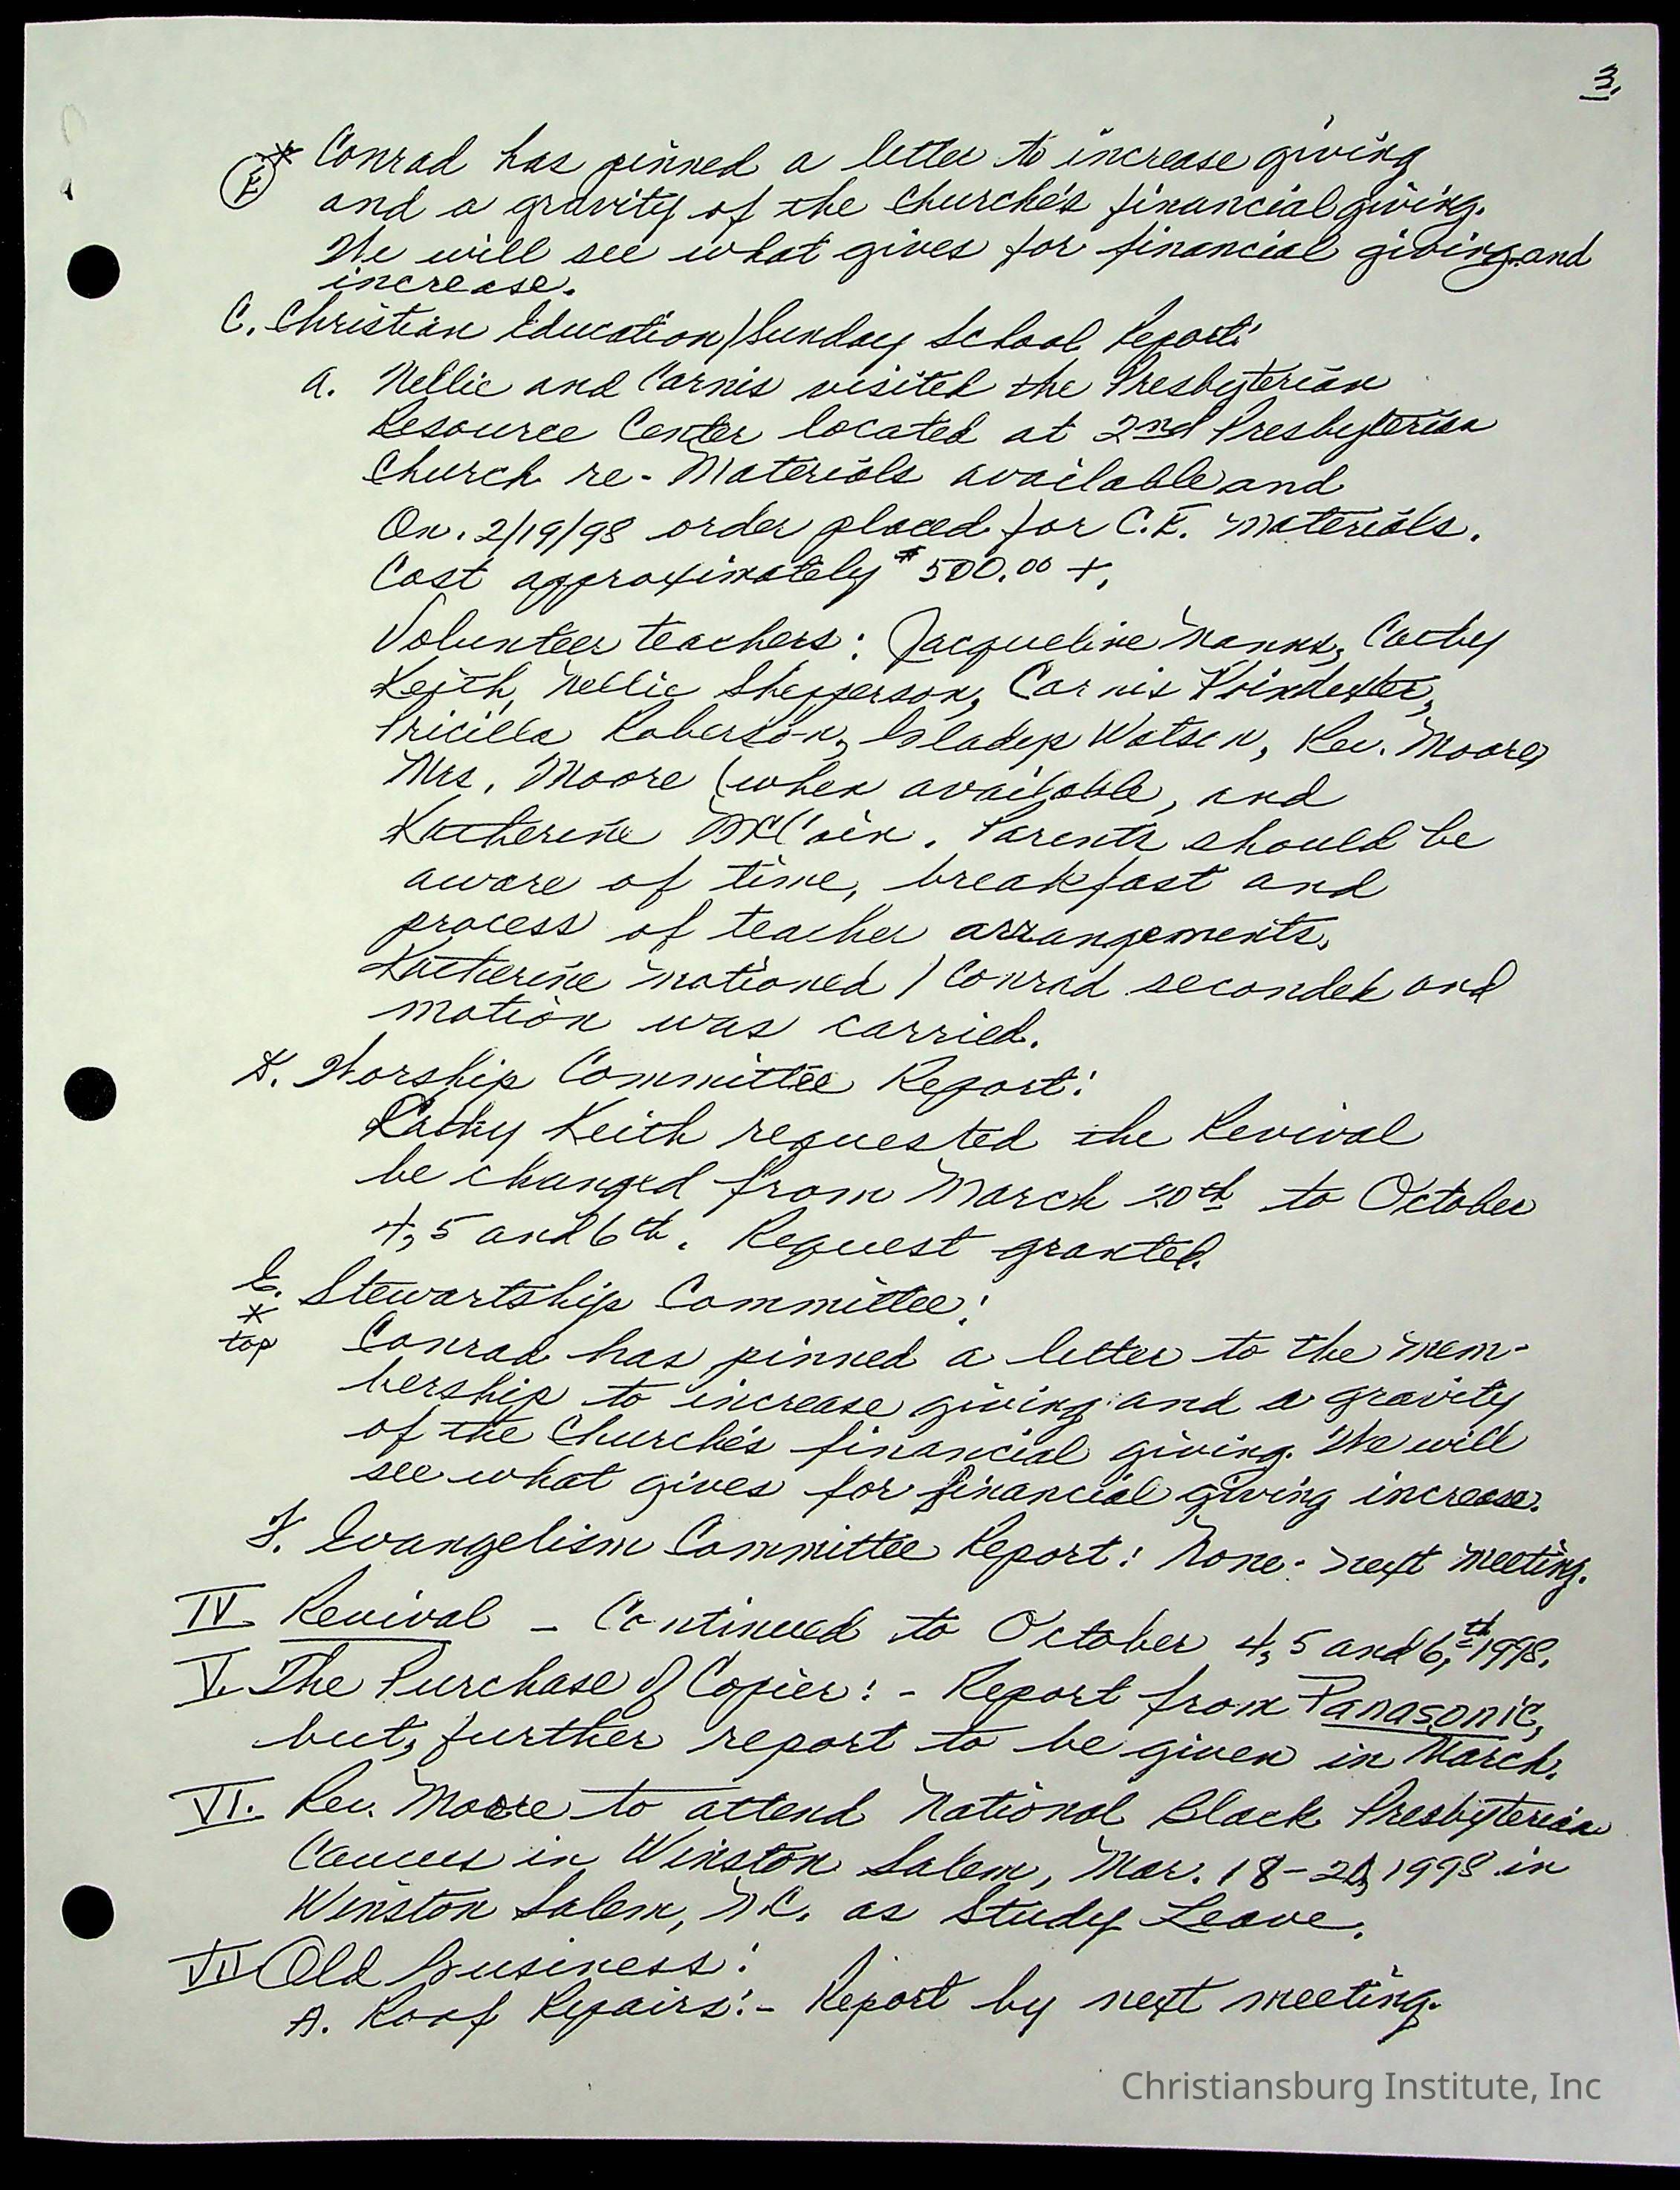 3.
* Conrad has pinned a letter to increase giving
(E) and a gravity of the Churche's financial giving.
We will see what gives for financial giving and
increase.
C. Christian Education/Sunday School Report:
a. Nellie and Carnis visited the Presbyterian
Resource Center located at 2nd Presbyterian
Church re- Materials available and
On. 2/19/98 order placed for C.E. materials.
Cost approximately $500.00 +.
Volunteer teachers: Jacqueline Nanns, Cathy
Keith, Nellie Shepperson, Carnis Poindexter,
Pricilla Roberson, Gladys Watson, Rev. Moore,
Mrs. Moore (when available, and
Katherine McCain. Parents should be
aware of time, breakfast and
process of teacher arrangements.
Katherine motioned / Conrad seconded and
motion was carried.
D. Worship Committee Report:
Cathy Keith requested the Revival
be changed from March 20th to October
4, 5 and 6th. Request granted.
E. Stewartship Committee:
*
top Conrad has pinned a letter to the mem-
bership to increase giving and a gravity
of the Churche's financial giving. We will
see what gives for financial giving increase.
F. Evangelism Committee Report: None - next meeting.
IV Revival - Continued to October 4, 5 and 6,th 1998.
V. The Purchase of Copier: - Report from Panasonic,
but, further report to be given in March.
VI. Rev. Moore to attend National Black Presbyterian
Caucus in Winston Salem, Mar. 18-, 1998 in
Winston Salem, N.C. as Study Leave.
VII Old Business:
A. Roof Repairs: - Report by next meeting.
Christiansburg Institute, Inc